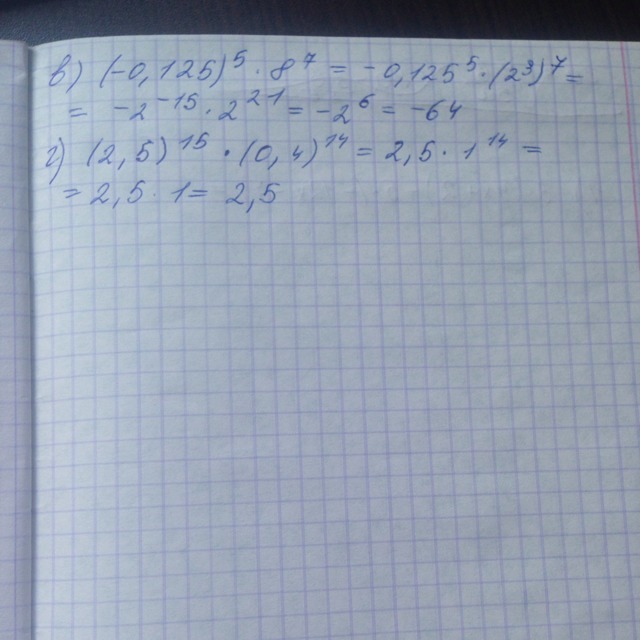 в) (-0,125)⁵ · 8⁷ = -0,125⁵ · (2³)⁷ =
= -2⁻¹⁵ · 2²¹ = -2⁶ = -64
г) (2,5)¹⁵ · (0,4)¹⁴ = 2,5 · 1¹⁴ =
= 2,5 · 1 = 2,5